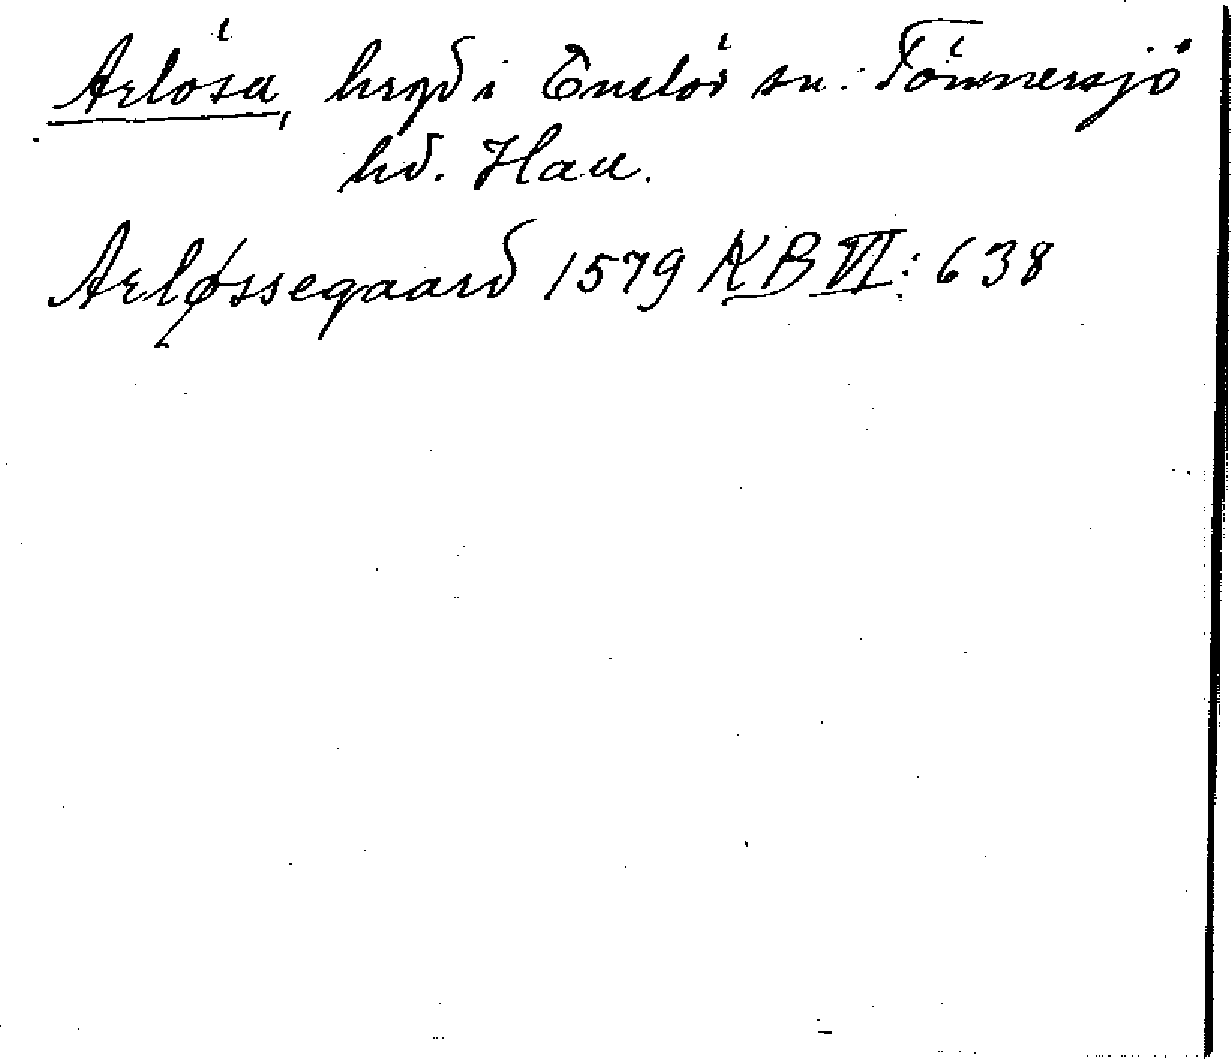 Arlösa, hsgd i Enslöv sn. Tönnersjö
hd. Hall.
Arløssegaard 1579 KB VI: 638